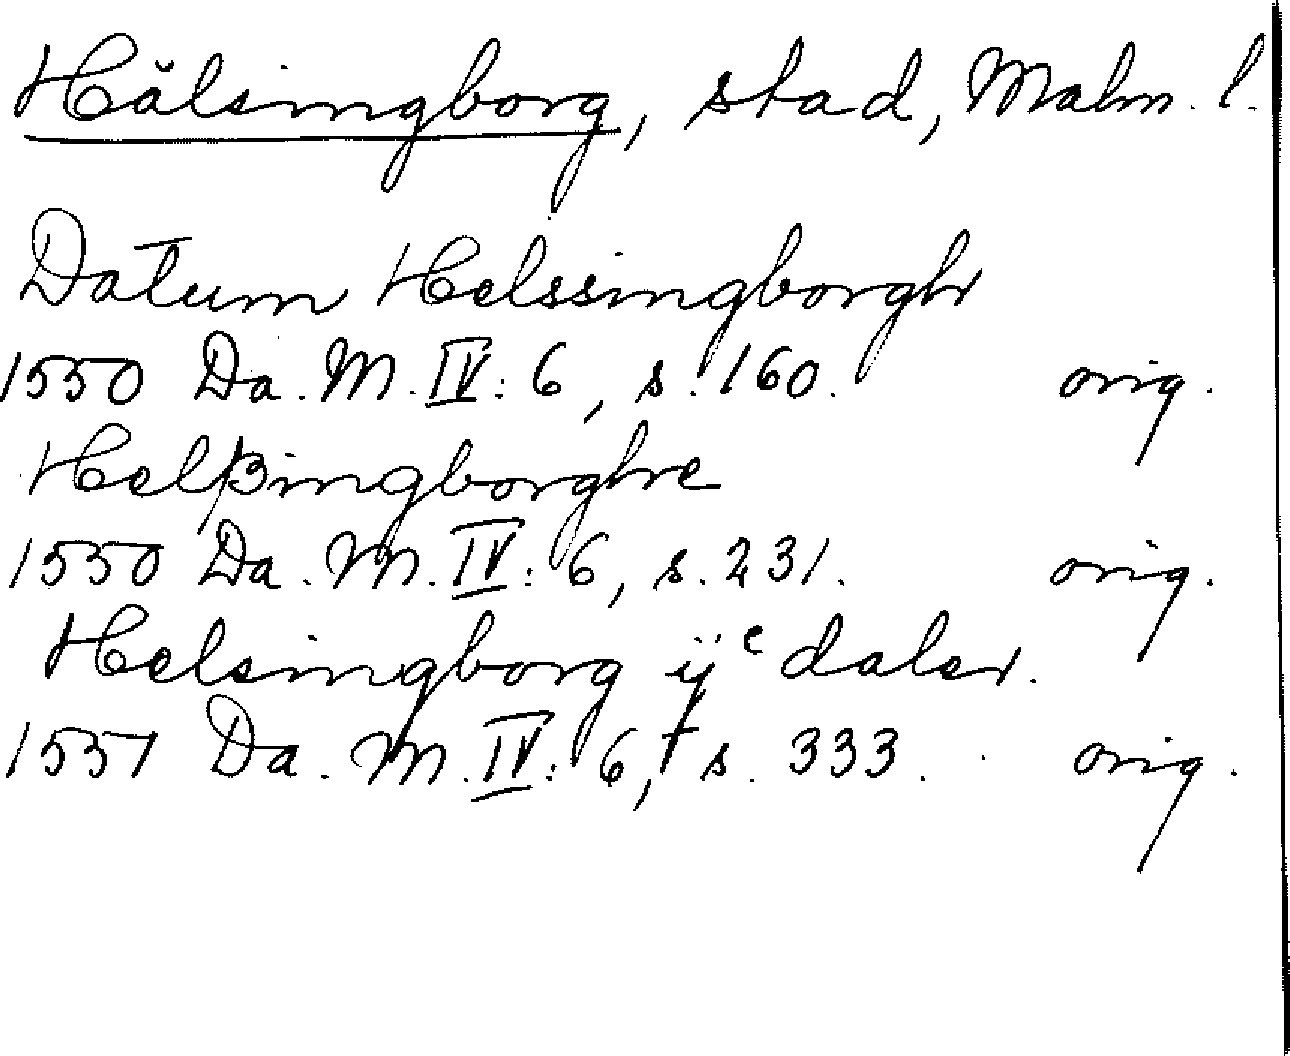 Hälsingborg, stad, Malm. l.
Datum Helssingborgh
1550 Da. M. IV: 6, s. 160. orig.
Helßingborghe
1550 Da. M. IV: 6, s. 231. orig.
Helsingborg ijᶜ daler.
1551 Da. M. IV: 6, s. 333. orig.